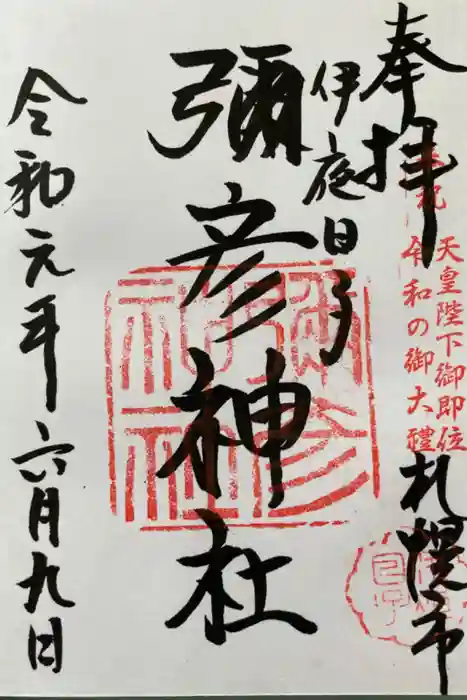 奉拝
札幌市
奉祝
天皇陛下御即位
令和の御大禮
伊夜日子
彌彦神社
彌彦
神社
令和元年六月九日